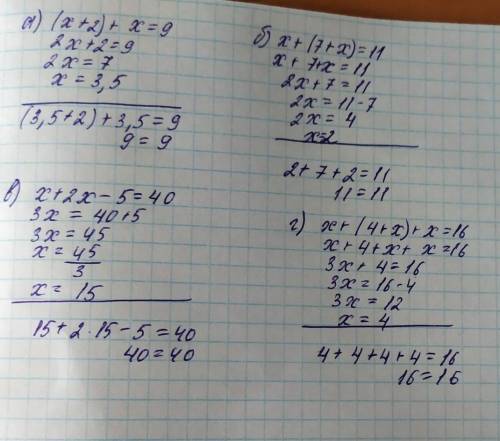 а) (x+2) + x = 9
2x+2=9
2x = 7
x = 3,5
(3,5+2)+3,5=9
9 = 9
б) x + (7+x)=11
x + 7+x = 11
2x+7=11
2x = 11-7
2x = 4
x=2
2+7+2=11
11=11
в) x+2x-5=40
3x = 40+5
3x = 45
x = 45/3
x = 15
15+2·15-5=40
40=40
г) x+(4+x)+x=16
x+4+x+x=16
3x+4=16
3x=16-4
3x = 12
x = 4
4+4+4+4=16
16=16